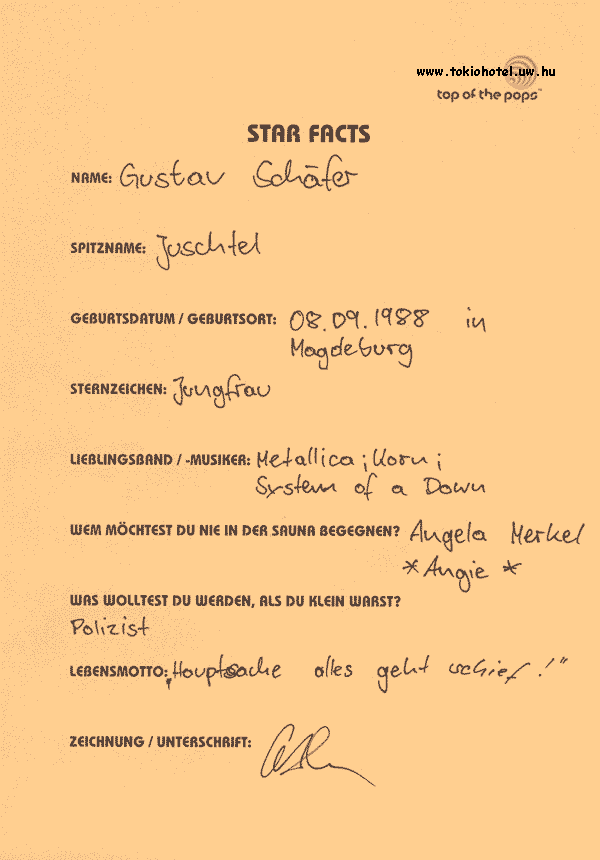 www.tokiohotel.uw.hu
top of the pops™
STAR FACTS
NAME: Gustav Schäfer
SPITZNAME: Juschtel
GEBURTSDATUM / GEBURTSORT: 08.09.1988 in
Magdeburg
STERNZEICHEN: Jungfrau
LIEBLINGSBAND / -MUSIKER: Metallica; Korn;
System of a Down
WEM MÖCHTEST DU NIE IN DER SAUNA BEGEGNEN? Angela Merkel
*Angie *
WAS WOLLTEST DU WERDEN, ALS DU KLEIN WARST?
Polizist
LEBENSMOTTO: „Hauptsache alles geht schief!“
ZEICHNUNG / UNTERSCHRIFT: